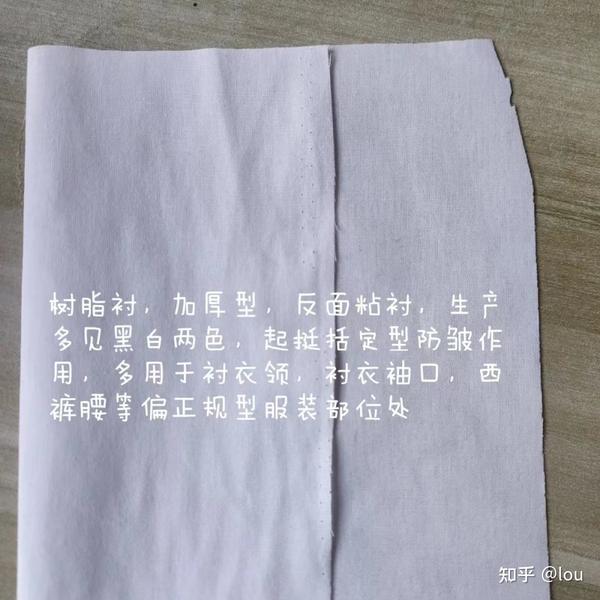 树脂衬，加厚型，反面粘衬，生产
多见黑白两色，起挺括定型防皱作
用，多用于衬衣领，衬衣袖口，西
裤腰等偏正规型服装部位处
知乎 @lou